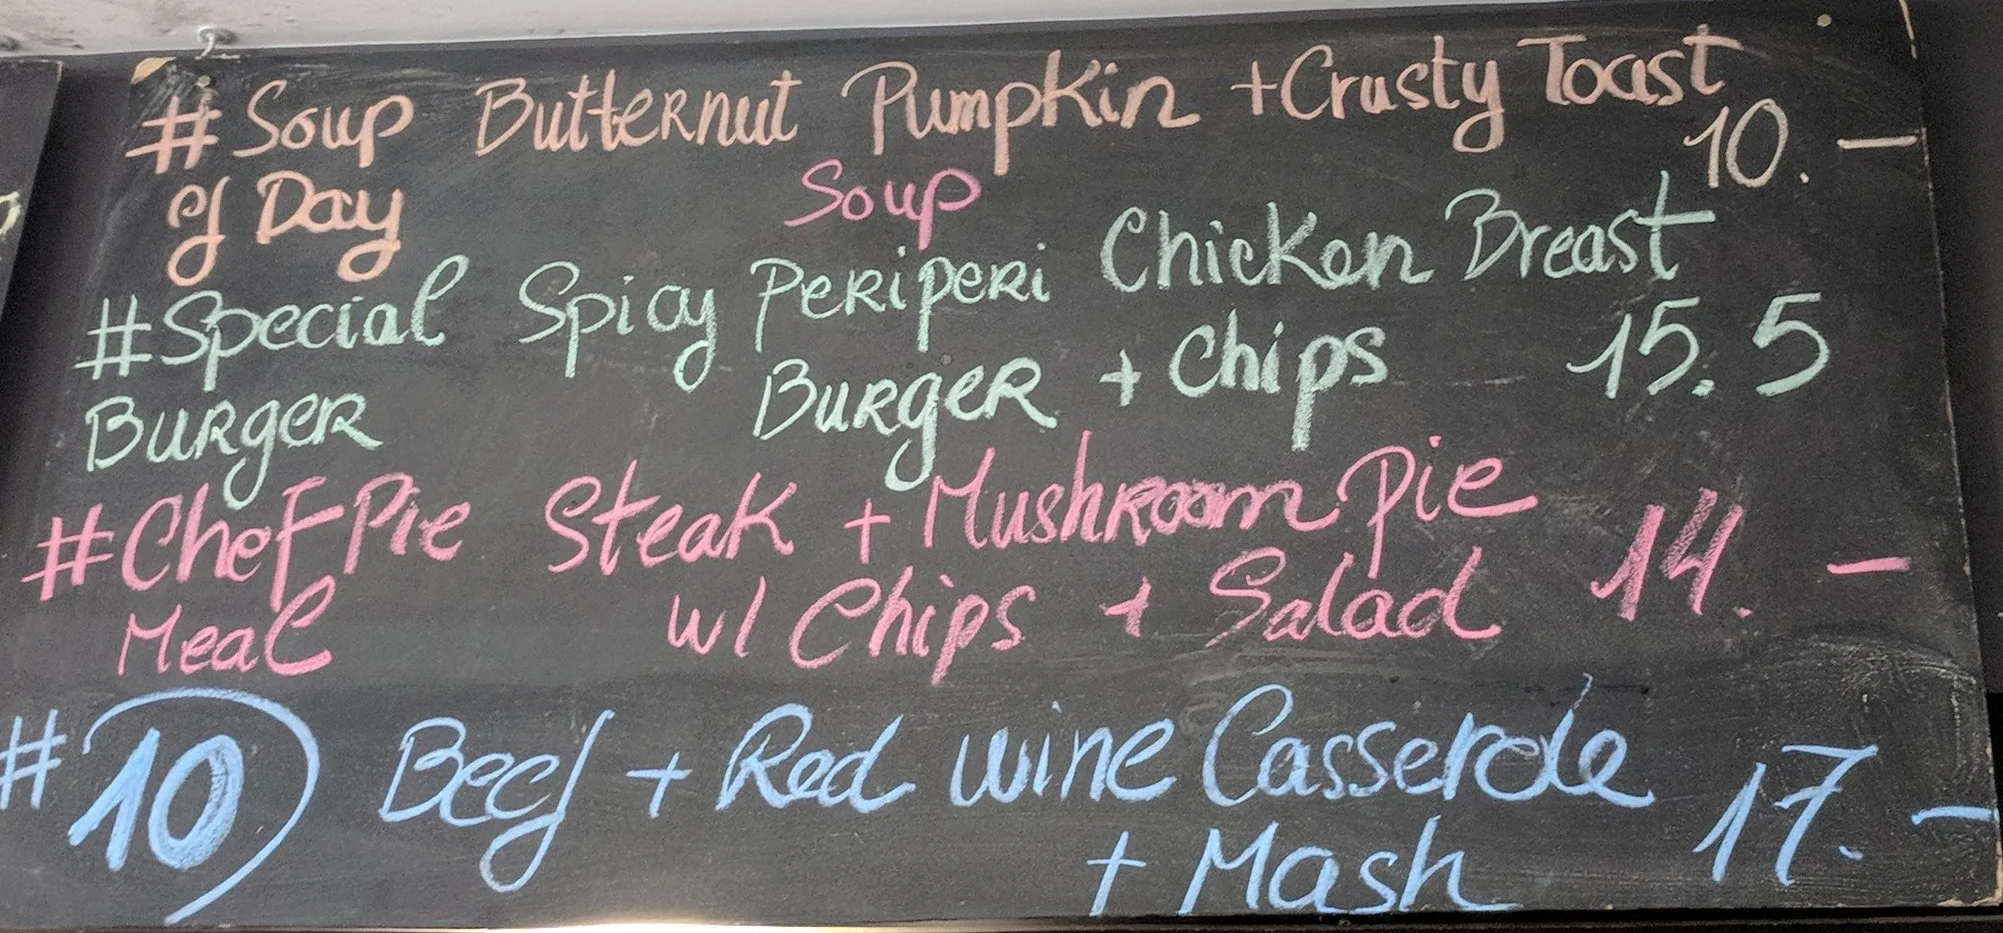 # Soup Butternut Pumpkin + Crusty Toast
of Day Soup 10.—
# Special Spicy Periperi Chicken Breast
Burger Burger + Chips 15.5
# Chef Pie Steak + Mushroom Pie
Meal w/ Chips + Salad 14.—
# 10) Beef + Red wine Casserole
+ Mash 17.—